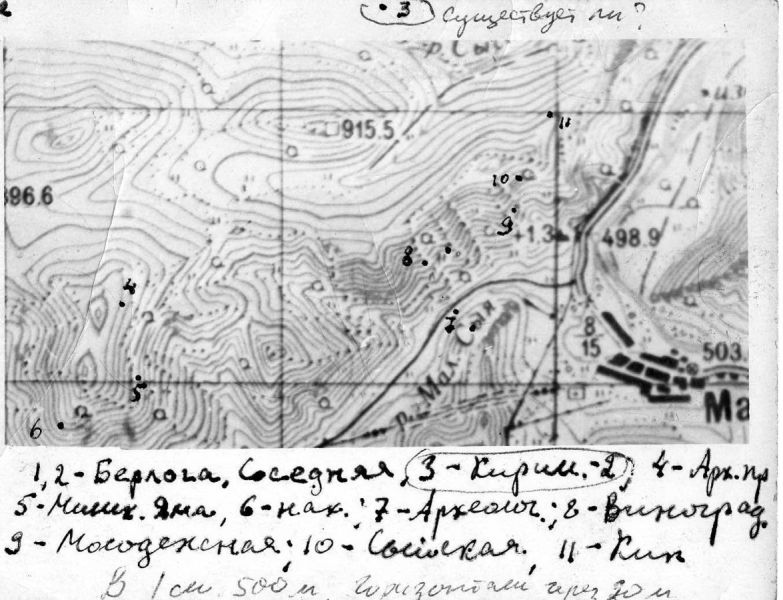 2
3 существует ли?
р. Сы
915.5
896.6
11
10
9
8
+1.3
498.9
4
7
р. Мал. Сыя
8
15
503.
5
6
Ма
1, 2 - Берлога, Соседняя, 3 - Кирил.-2, 4 - Арх. пр
5 - Миш. Яма, 6 - нак.; 7 - Археолог.; 8 - Виноград.
9 - Молодежная; 10 - Сыйская, 11 - Кик
В 1 см 500 м, горизонтали через 20 м